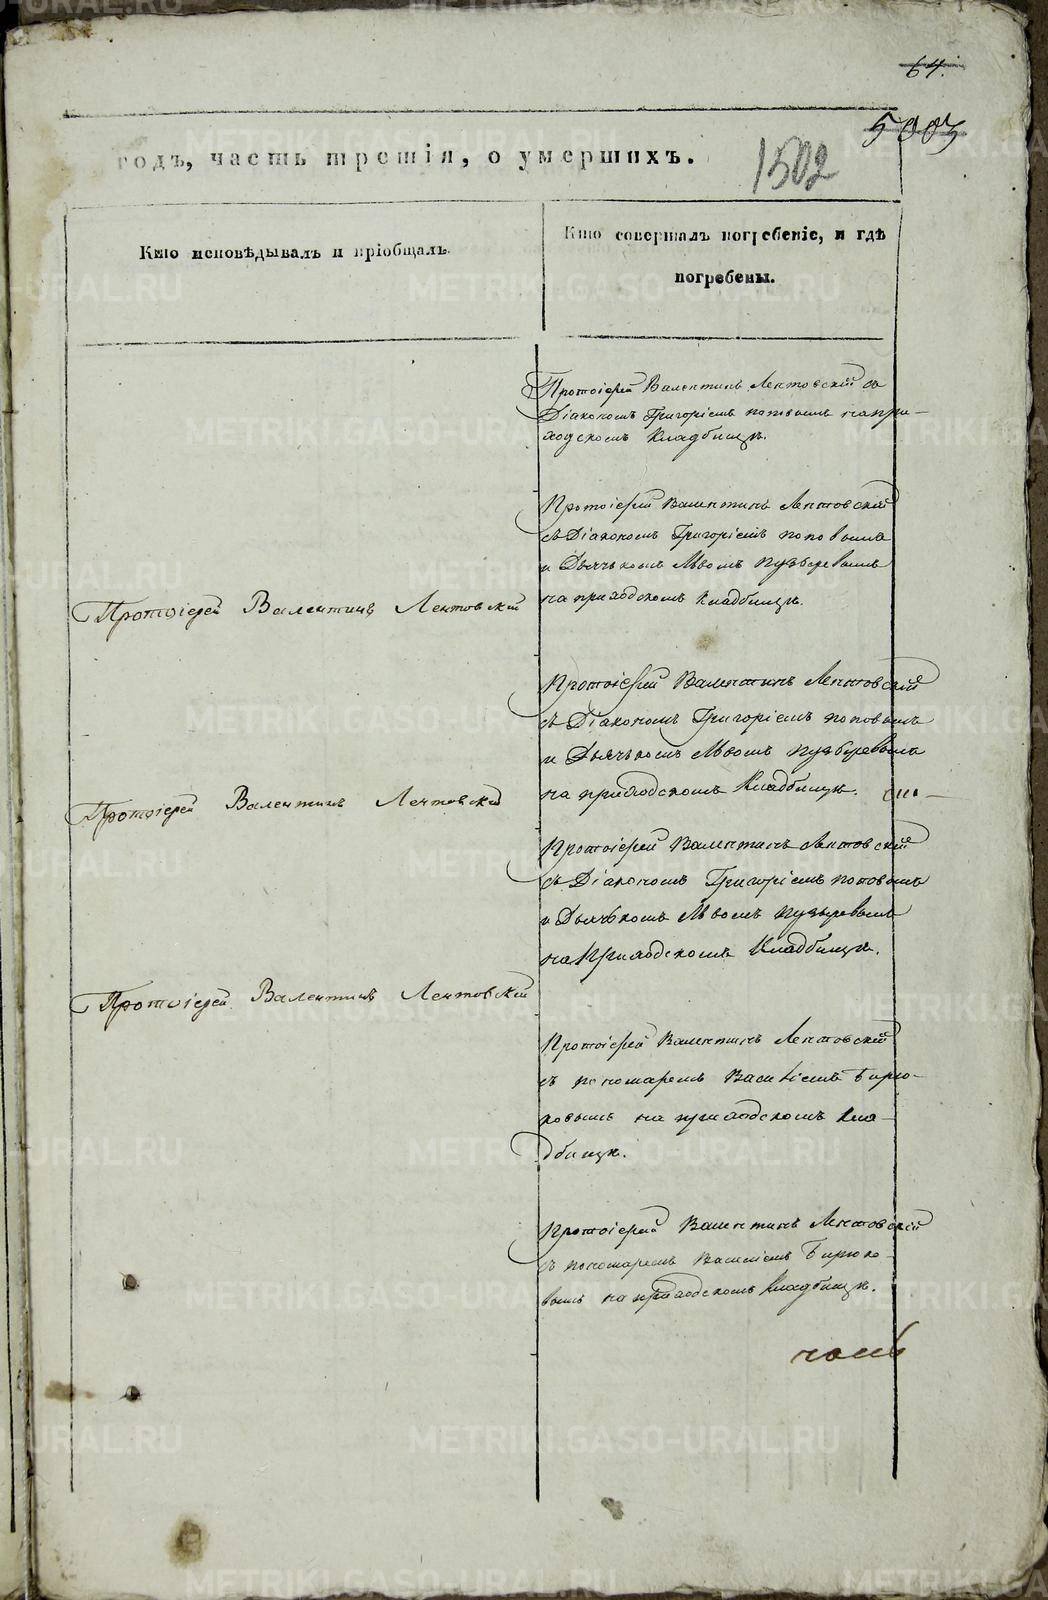 64.
годъ, часть третія, о умершихъ.
1502
Кто исповѣдывалъ и пріобщалъ.
Кто совершалъ погребеніе, и гдѣ
погребены.
Протоіерей Валентинъ Лентовскій съ
Діакономъ Григоріемъ поповымъ на при-
ходскомъ Кладбищѣ.
Протоіерей Валентинъ Лентовскій
съ Діакономъ Григоріемъ поповымъ
и Дьячькомъ Львомъ Пузыревымъ
на приходскомъ Кладбищѣ.
Протоіерей Валентинъ Лентовскій
Протоіерей Валентинъ Лентовскій
съ Діакономъ Григоріемъ поповымъ
и Дьячькомъ Львомъ пузыревымъ
на приходскомъ Кладбищѣ.
Протоіерей Валентинъ Лентовскій
Протоіерей Валентинъ Лентовскій
съ Діакономъ Григоріемъ поповымъ
и Дьячькомъ Львомъ пузыревымъ
на Приходскомъ Кладбищѣ.
Протоіерей Валентинъ Лентовскій
Протоіерей Валентинъ Лентовскій
съ пономаремъ Василіемъ Бирю-
ковымъ на приходскомъ Кла-
дбищѣ.
Протоіерей Валентинъ Лентовскій
съ пономаремъ Василіемъ Бирюко-
вымъ на приходскомъ Кладбищѣ.
METRIKI.GASO-URAL.RU